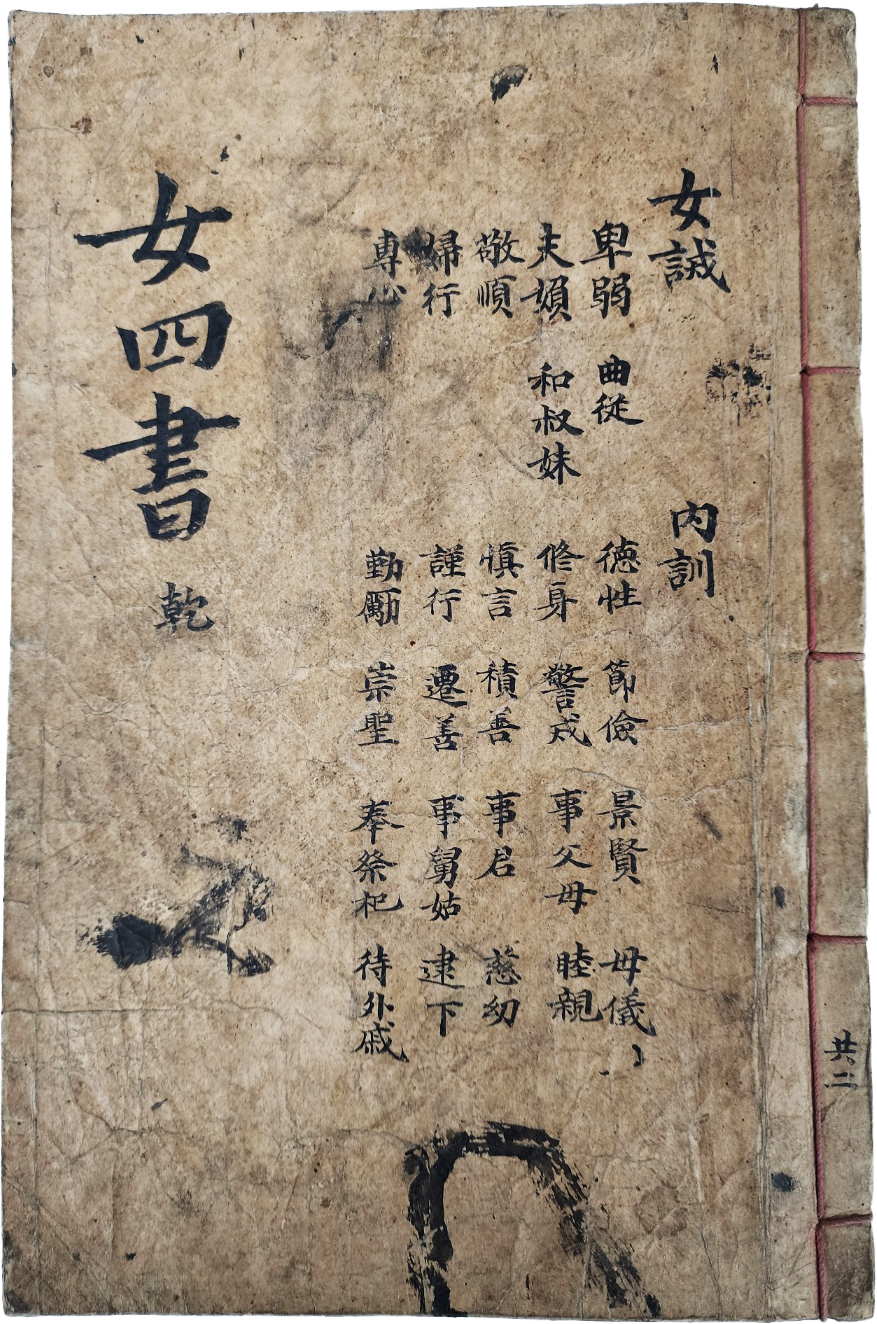 共二
女誡
卑弱
夫媍
敬順
婦行
專心
曲從
和叔妹
內訓
德性
修身
愼言
謹行
勤勵
節儉
警戒
積善
遷善
崇聖
景賢
事父母
事君
事舅姑
奉祭祀
母儀
睦親
慈幼
逮下
待外戚
女四書 乾